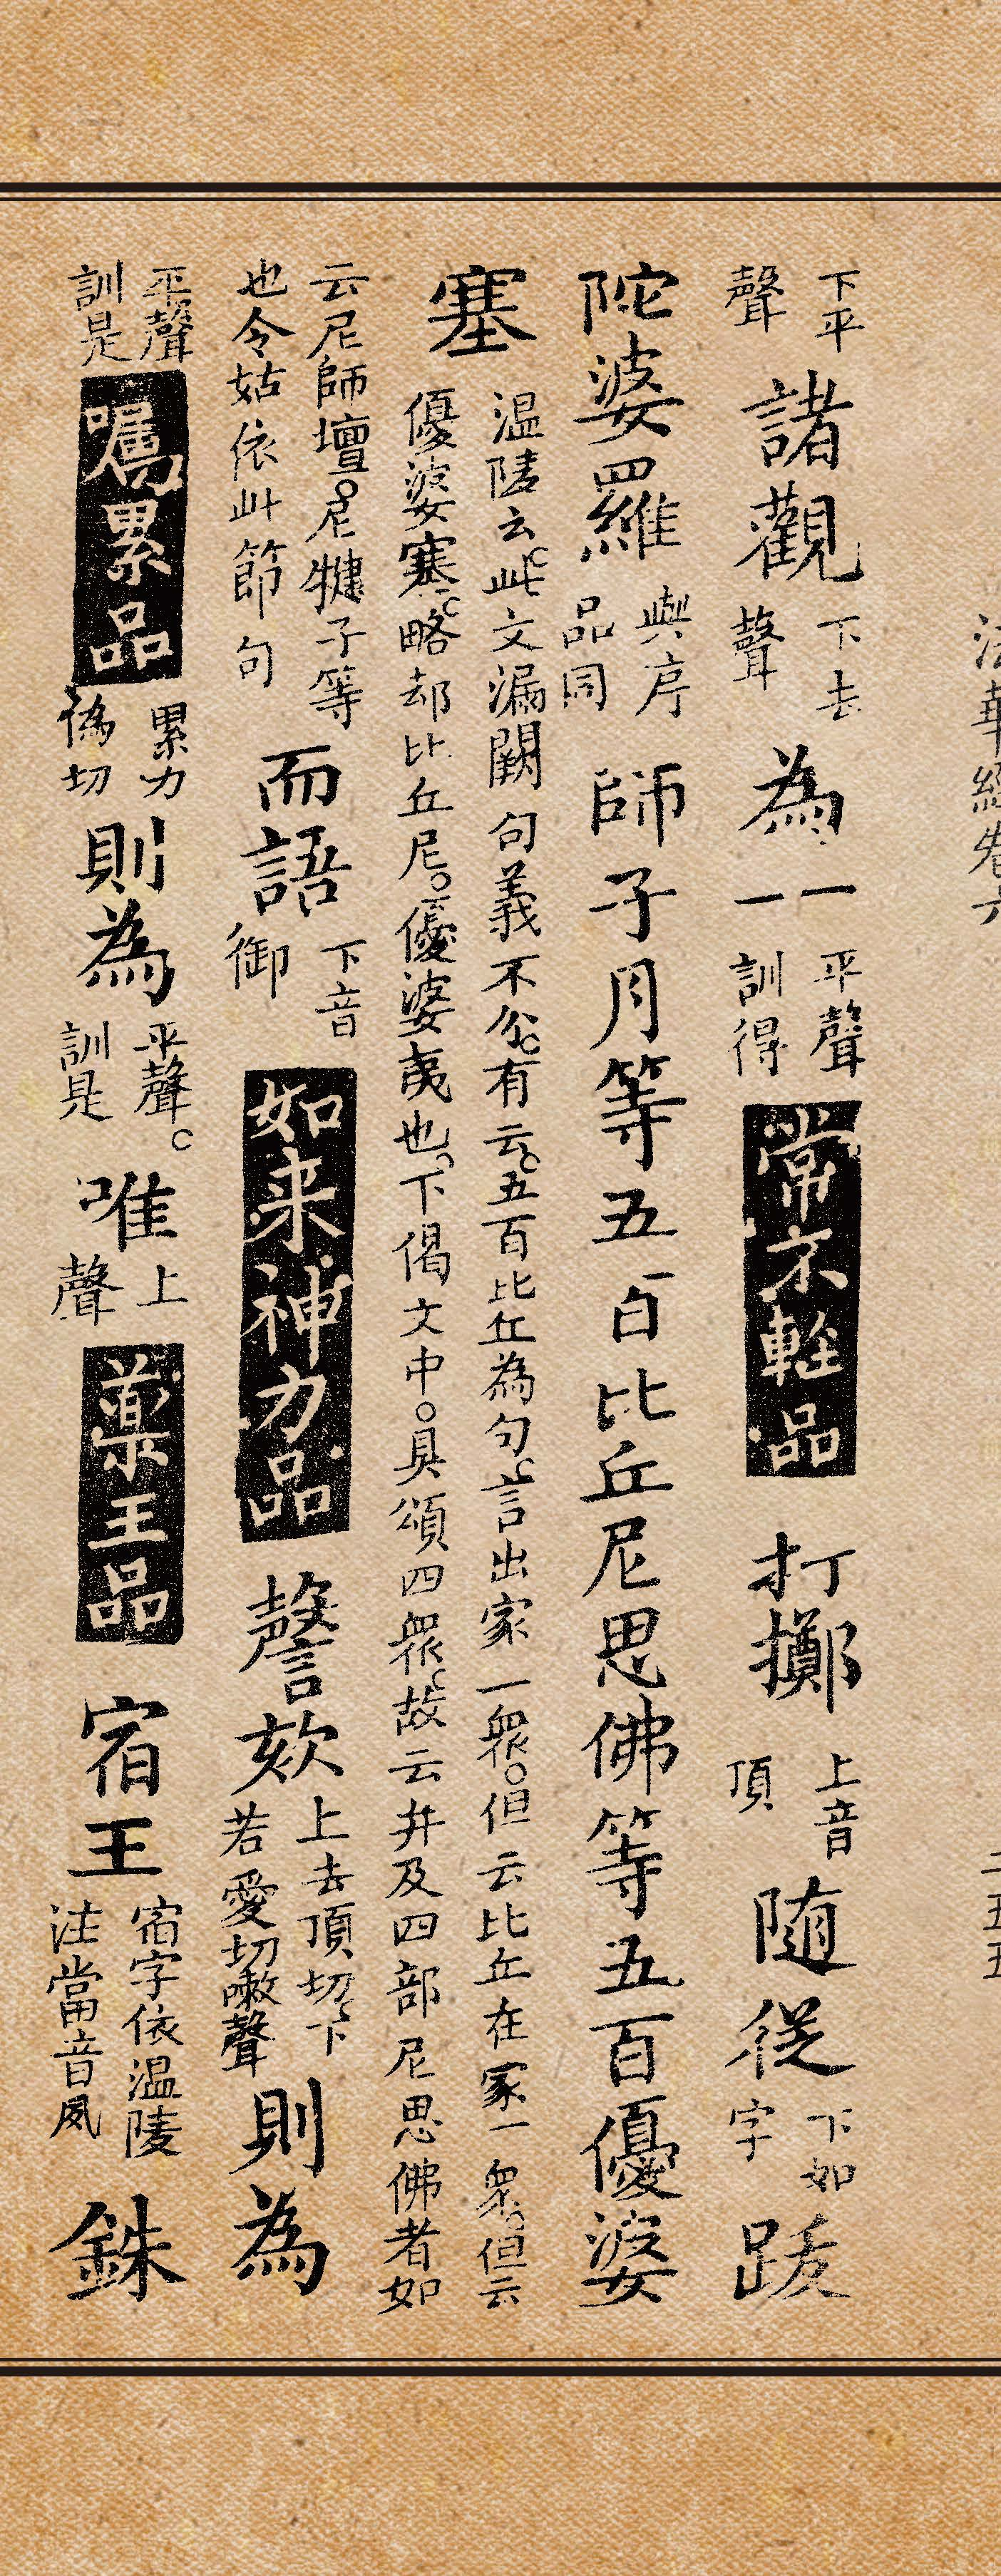 法華經卷六 二五五
下平聲諸觀下去聲為一平聲一訓得常不軽品打擲上音頂随從下如字跋
陀婆羅與序品同師子月等五百比丘尼思佛等五百優婆
塞温陵云此文漏闕句義不分有云五百比丘為句言出家一衆但云比丘在家一衆但云
優婆塞略却比丘尼優婆夷也下偈文中具頌四衆故云并及四部尼思佛者如
云尼師壇尼犍子等也令姑依此節句而語下音御如来神力品謦欬上去頂切下若愛切嗽聲則為
平聲訓是囑累品累力偽切則為平聲訓是唯上聲藥王品宿王宿字依温陵注當音夙銖